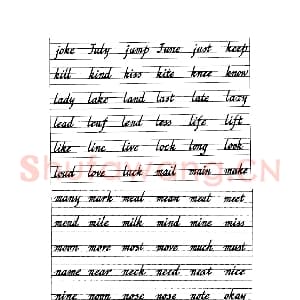 joke July jump June just keep
kill kind kiss kite knee know
lady lake land last late lazy
lead leaf lend less life lift
like line live lock long look
loud love luck mail main make
Shufawang.CN
many mark meal mean meat meet
mend mile milk mind mine miss
moon more most move much must
name near neck need next nice
nine noon nose note okay